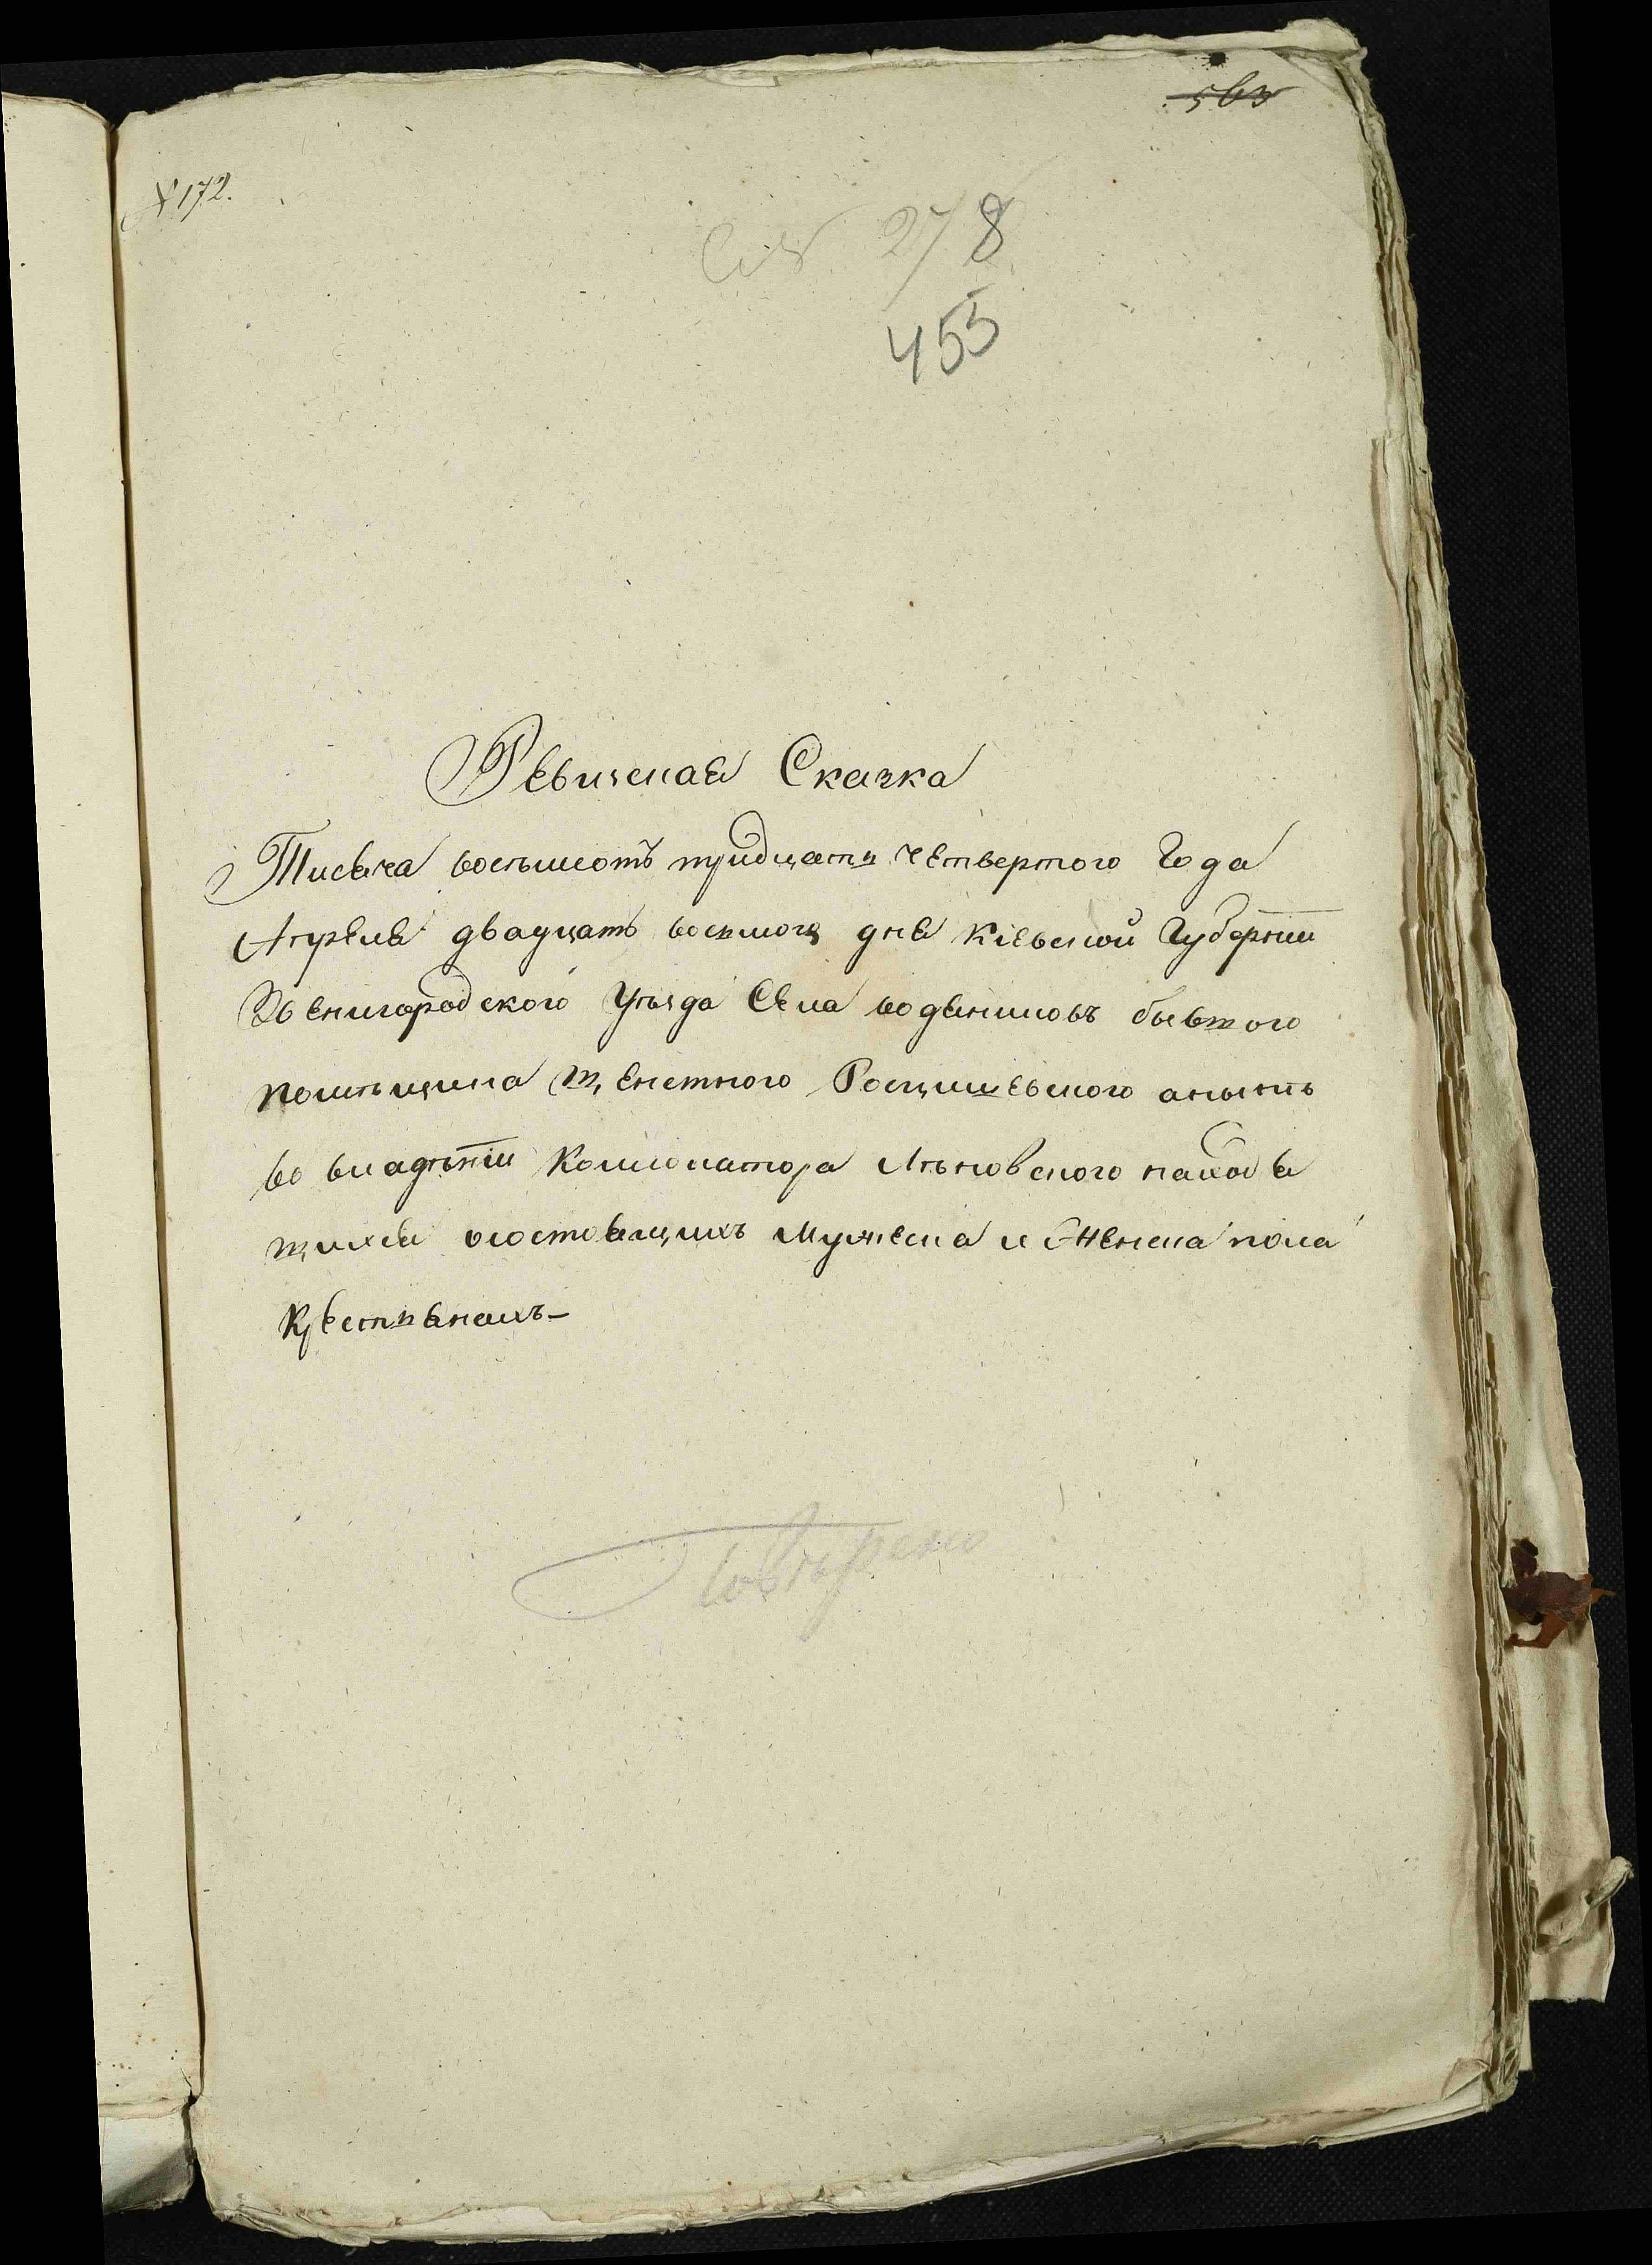 563
№ 172.
278
455
Ревизская Сказка
Тисяча восемьсотъ тридцати четвертого Года
Апреля двадцать восмого дня Кіевской Губерніи
Звенигородского Уезда Села водяниковъ бывшого
помещика Щенстного Росцишевского а ныне
во владѣніи Комисатора находя
щихся и состоящихъ Мужеска и Женска пола
Крестьянахъ–
Поверено